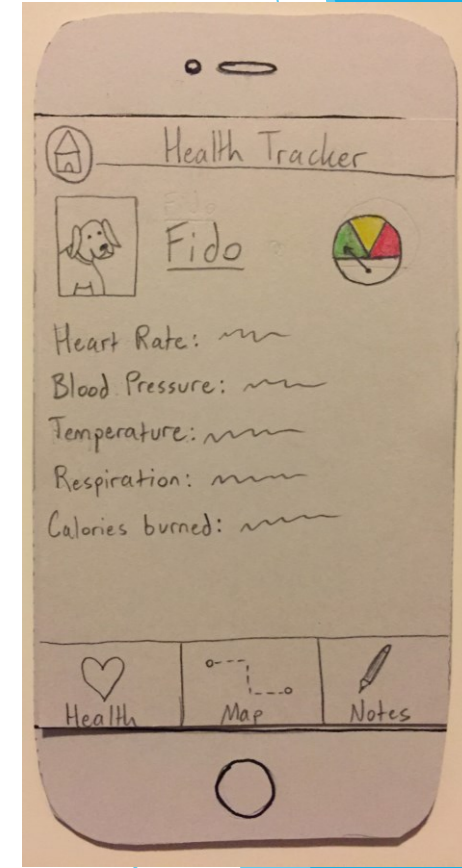 Health Tracker
Fido
Heart Rate:
Blood Pressure:
Temperature:
Respiration:
Calories burned:
Health
Map
Notes